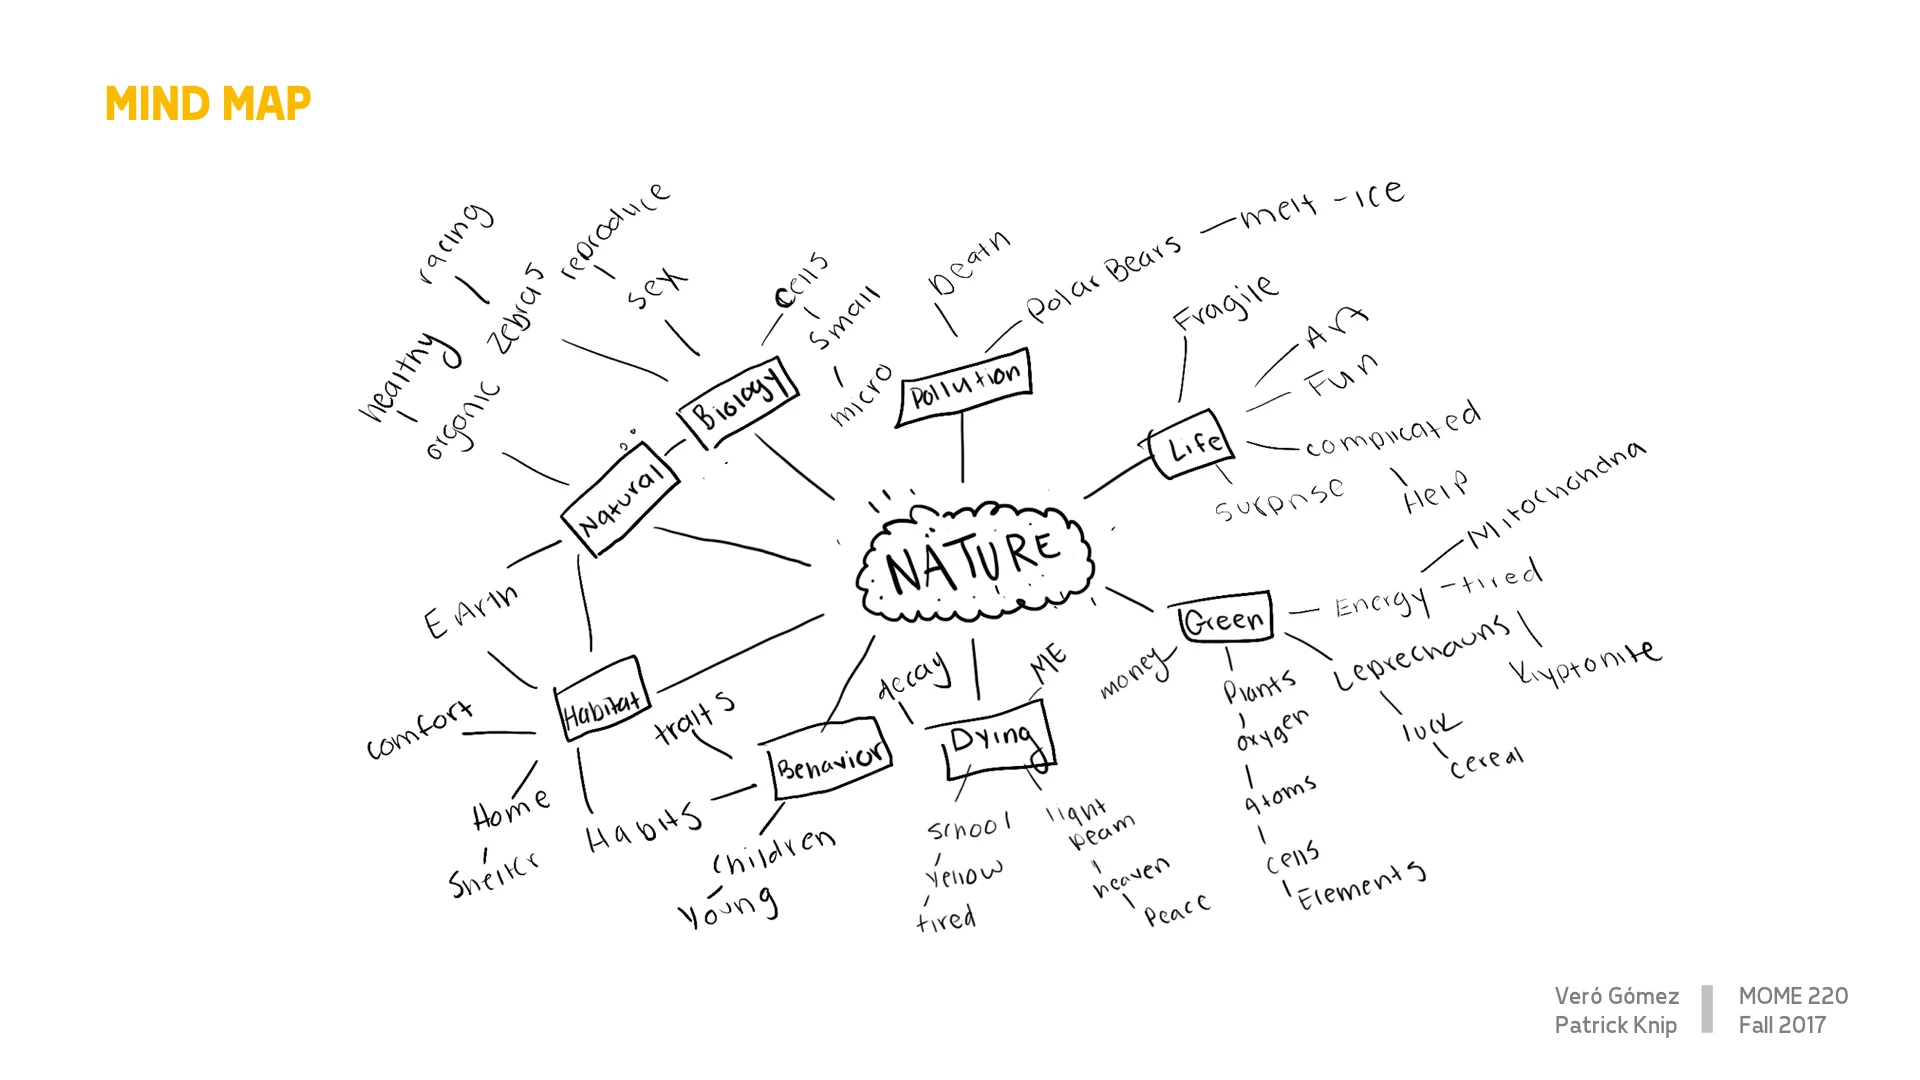 MIND MAP
racing
zebras
reproduce
sex
cells
small
micro
healthy
organic
Biology
Natural
Death
Polar Bears - melt - ice
Pollution
Fragile
Art
Fun
Life
complicated
Help
surprise
NATURE
Mitochondria
Energy - tired
Green
Leprechauns
Kryptonite
luck
cereal
money
Plants
oxygen
Atoms
cells
Elements
EArth
Habitat
comfort
Home
Shelter
Habits
traits
Behavior
children
young
decay
ME
Dying
school
yellow
tired
light
beam
heaven
Peace
Veró Gómez
Patrick Knip
MOME 220
Fall 2017